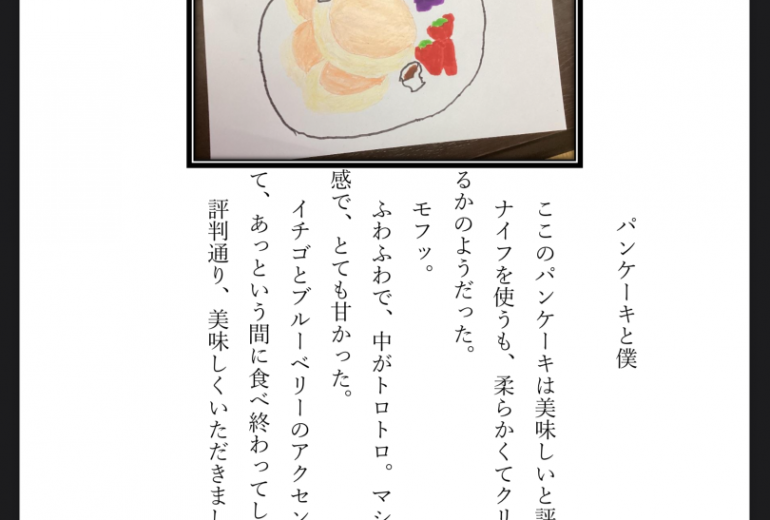 パンケーキと僕
ここのパンケーキは美味しいと評
ナイフを使うも、柔らかくてクリ
るかのようだった。
モフッ。
ふわふわで、中がトロトロ。マシ
感で、とても甘かった。
イチゴとブルーベリーのアクセン
て、あっという間に食べ終わってし
評判通り、美味しくいただきまし